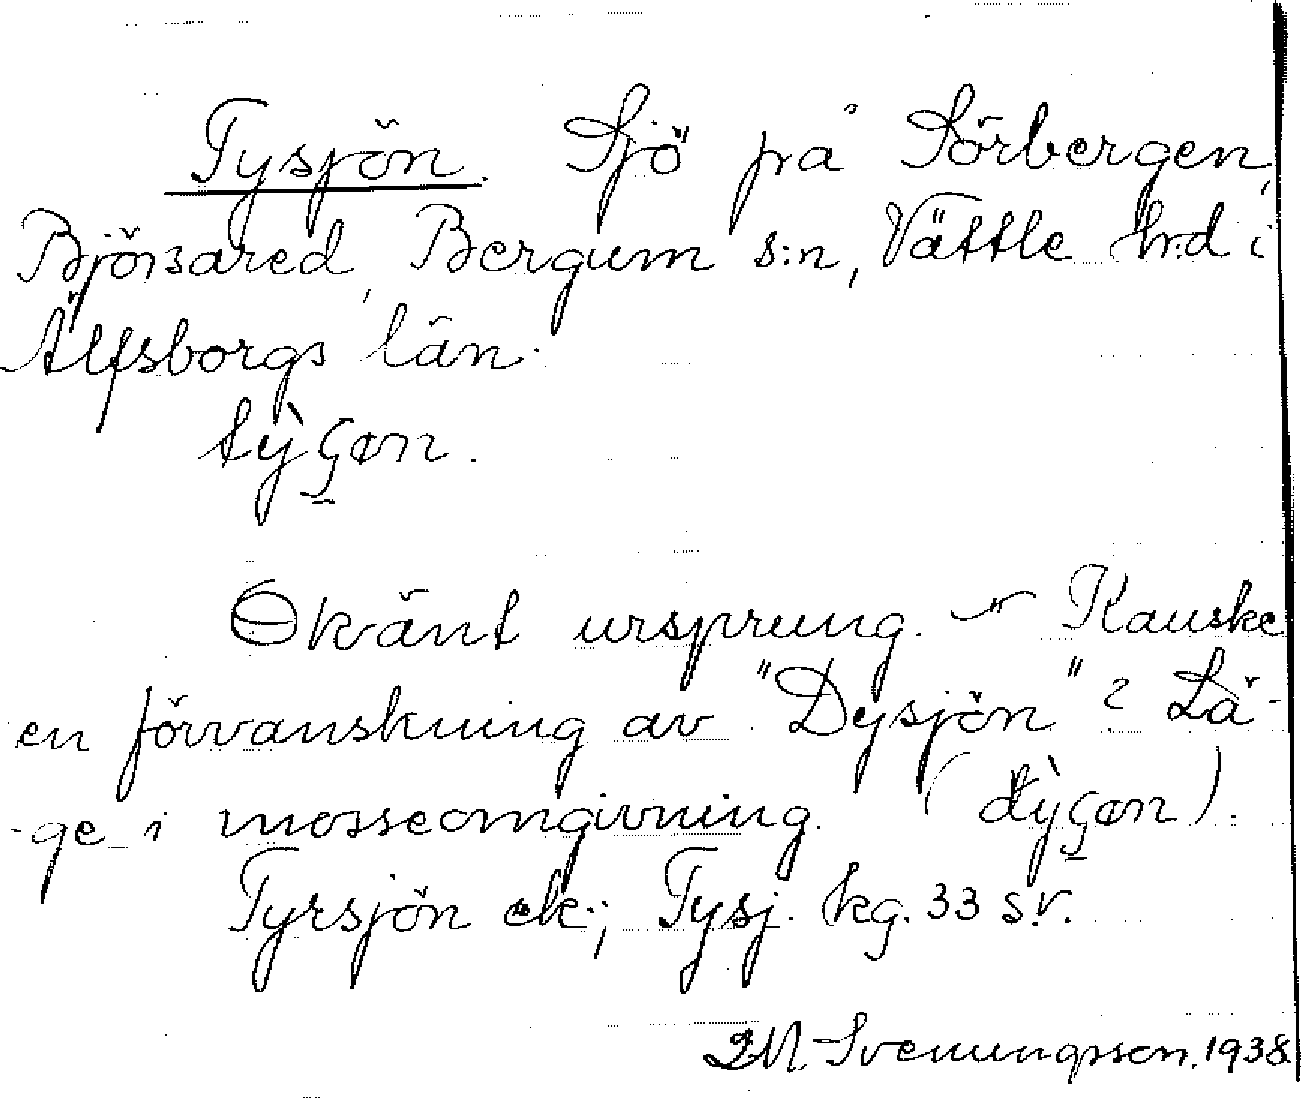 Tysjön. Sjö på Sörbergen,
Björsared, Bergum s:n, Vättle hrd i
Älfsborgs län.
tỳʂøn.
Okänt ursprung. – Kanske
en förvanskning av "Dysjön"? Lä-
-ge i mosseomgivning. (dỳʂøn).
Tyrsjön ek.; Tysj. kg. 33 s.v.
M. Svenungsson. 1938.